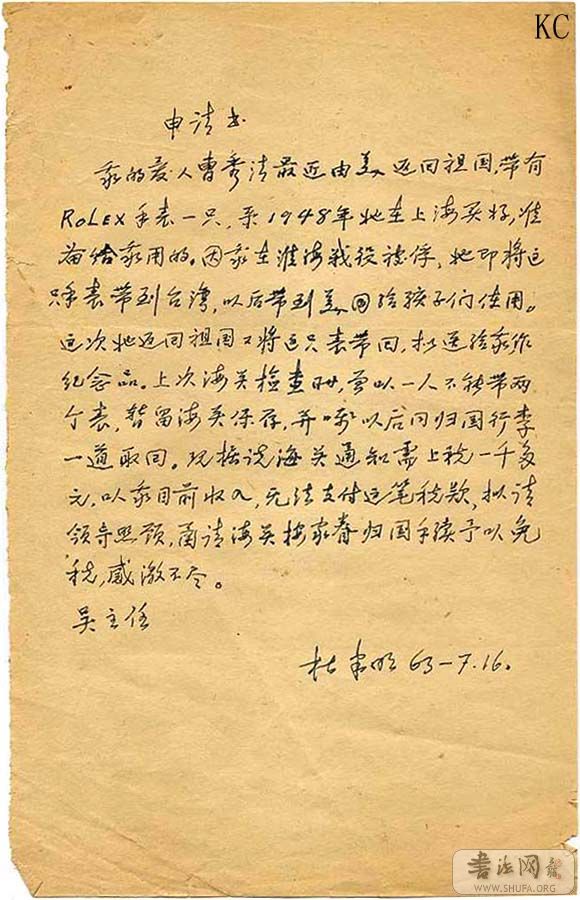 KC
申请书
我的爱人曹秀清最近由美返回祖国,带有
ROLEX手表一只,系1948年她在上海买好,准
备给我用的。因我在淮海战役被俘,她即将这
只手表带到台湾,以后带到美国给孩子们使用。
这次她返回祖国又将这只表带回,拟送给我作
纪念品。上次海关检查时,曾以一人不能带两
个表,暂留海关保存,并以后同归国行李
一道取回。现据说海关通知需上税一千多
元,以我目前收入,无法支付这笔税款,拟请
领导照顾,函请海关按家眷归国手续予以免
税,感激不尽。
吴主任
杜聿明 63-7.16。
书法网
WWW.SHUFA.ORG